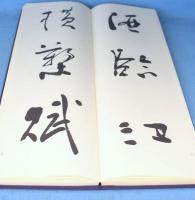 酒臨江
橫槊賦